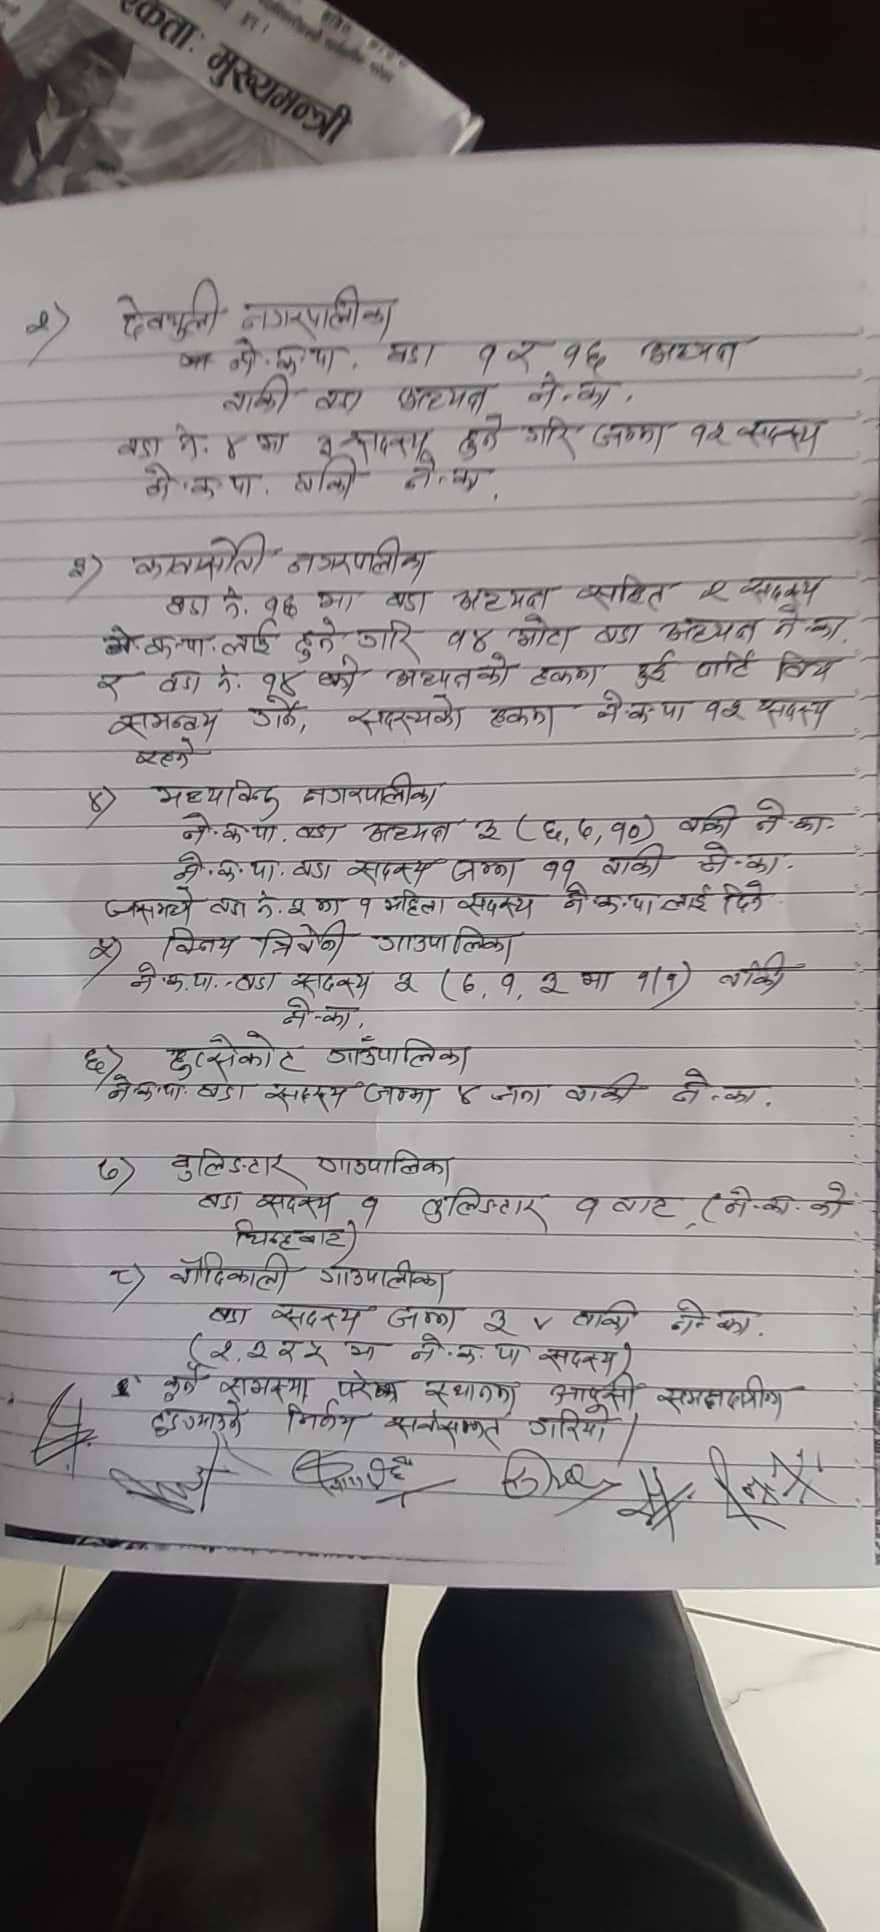 कता: मुख्यमन्त्री
२) देवचुली नगरपालीका
ने.क.पा. वडा १ र १६ अध्यक्ष
वाकी वडा अध्यक्ष ने.का.
वडा नं. ४ मा ३ सदस्य हुने गरि जम्मा १२ सदस्य
ने.क.पा. वाकि ने.का.
३) कावासोती नगरपालीका
वडा नं. १६ मा वडा अध्यक्ष सहित २ सदस्य
ने.क.पा. लाई हुने गरि १४ ओटा वडा अध्यक्ष ने.का.
र वडा नं. १४ को अध्यक्षको हकमा दुई पार्टि विच
समन्वय गर्ने, सदस्यको हकमा ने.क.पा १२ सदस्य
रहने
४) मध्यविन्दु नगरपालीका
ने.क.पा. वडा अध्यक्ष ३ (६, ७, १०) वाकी ने.का.
ने.क.पा. वडा सदस्य जम्मा ११ वाकी ने.का.
जसमध्ये वडा नं. २ मा १ महिला सदस्य ने.क.पा लाई दिने
५) विनय त्रिवेणी गाउपालिका
ने.क.पा. वडा सदस्य ३ (७, १, ३ मा १/१) वाँकी
ने.का.
६) हुप्सेकोट गाउँपालिका
ने.क.पा. वडा सदस्य जम्मा ४ जना वाकी ने.का.
७) वुलिङटार गाउपालिका
वडा सदस्य १ वुलिङटार १ वाट, (ने.का. को
चिन्हबाट)
८) वौदिकाली गाउपालीका
वडा सदस्य जम्मा ३ वाकी ने.का.
(२, ३ र ५ मा ने.क.पा सदस्य)
कुनै समस्या परेका स्थानमा आपुसी समझदारीमा
टुङग्याउने निर्णय सर्वसम्मत गरियो।